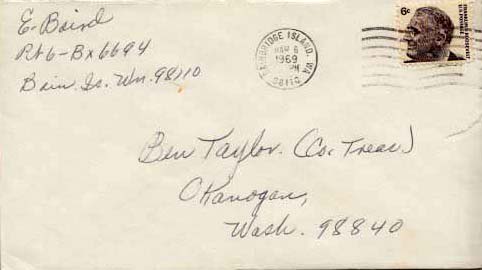 E. Baird
Rt 6 - Bx 6694
Bain. Is. Wn. 98110
BAINBRIDGE ISLAND, WA
MAR 6
1969
PM
98110
6c
FRANKLIN D. ROOSEVELT
U.S. POSTAGE
Ben Taylor. (Co. Treas)
Okanogan,
Wash. 98840